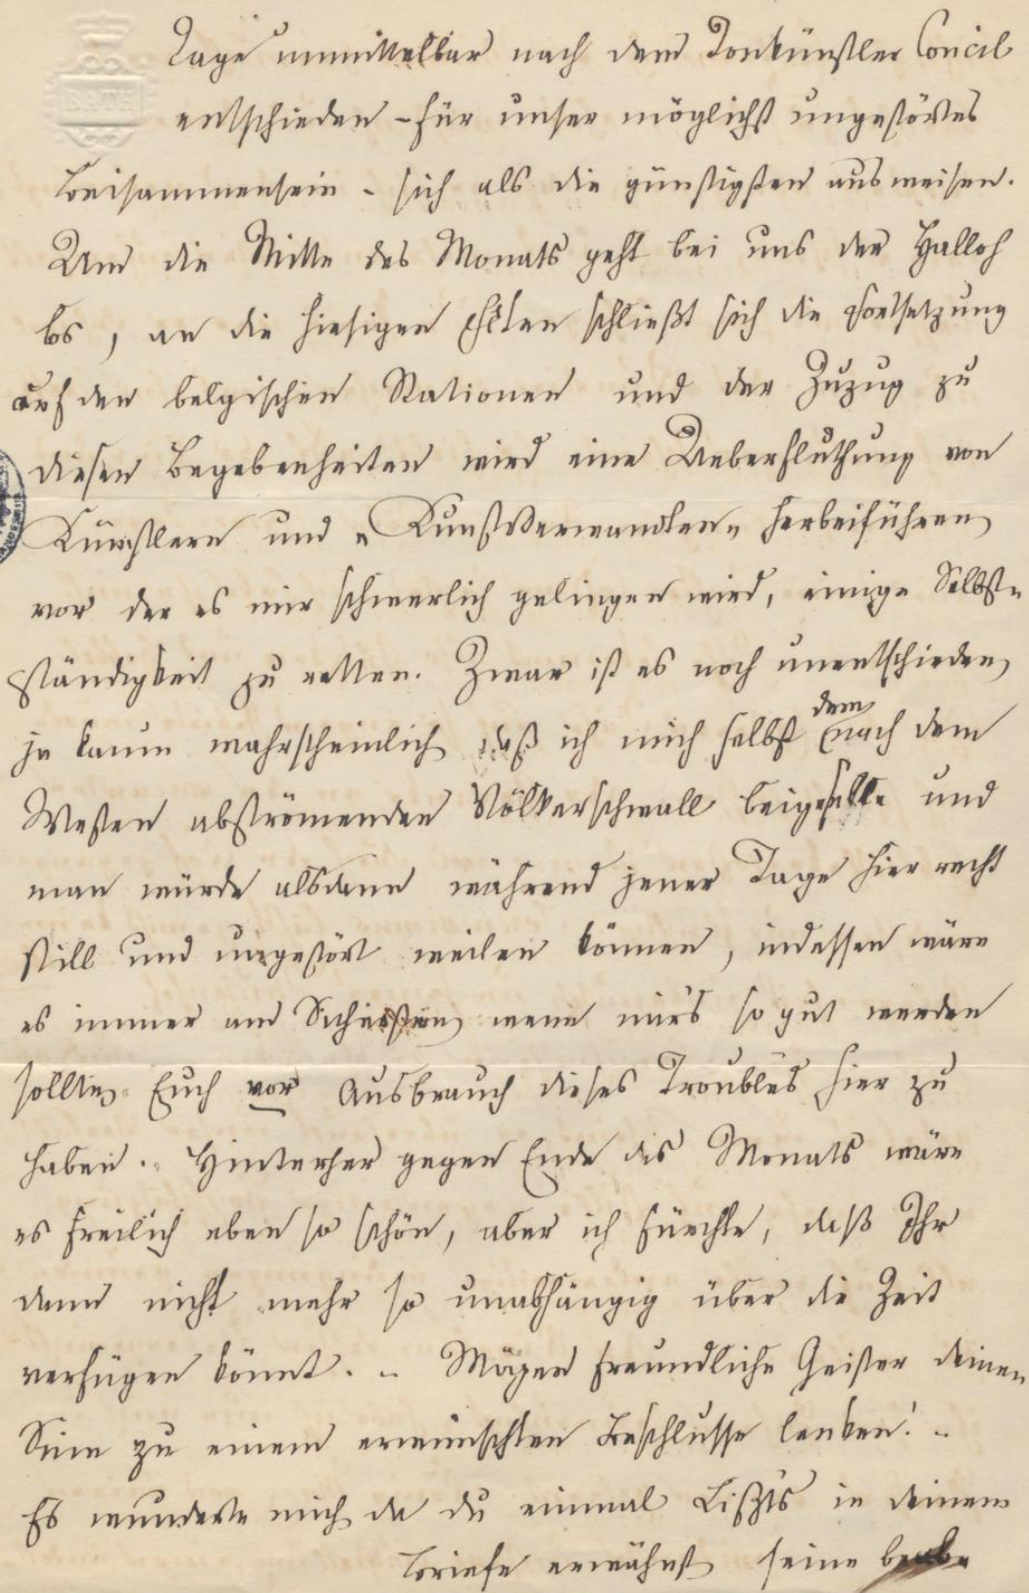 Tage unmittelbar nach dem Tonkünstler Concil
entschieden – für unser möglichst ungestörtes
Beisammensein – sich als die günstigsten ausweisen.
Um die Mitte des Monats geht bei uns der Halloh
los, an die hiesigen Fêten schließt sich die Fortsetzung
auf den belgischen Stationen und der Zuzug zu
diesen Begebenheiten wird eine Ueberfluthung von
Künstlern und „Kunstverwandten" herbeiführen,
vor der es mir schwerlich gelingen wird, einige Selbst-
ständigkeit zu retten. Zwar ist es noch unentschieden,
ja kaum wahrscheinlich, daß ich mich selbst dem nach dem
Westen abströmenden Völkerschwall beigeselle und
man würde alsdann während jener Tage hier recht
still und ungestört weilen können, indessen wäre
es immer am Sichersten, wenn mir's so gut werden
sollte, Euch vor Ausbruch dieses Troubles hier zu
haben. – Hinterher gegen Ende des Monats wäre
es freilich eben so schön, aber ich fürchte, daß Ihr
dann nicht mehr so unabhängig über die Zeit
verfügen könnt. – Mögen freundliche Geister deinen
Sinn zu einem erwünschten Beschlusse lenken! –
Es wunderte mich, da du einmal Liszts in deinem
Briefe erwähnst, seine